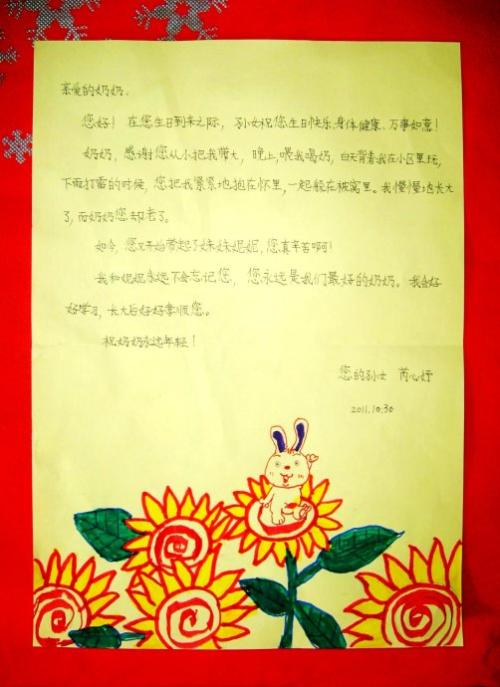 亲爱的奶奶、
您好！在您生日到来之际，孙女祝您生日快乐、身体健康、万事如意！
奶奶，感谢您从小把我带大，晚上，喂我喝奶，白天背着我在小区里玩，
下雨打雷的时候，您把我紧紧地抱在怀里，一起躲在被窝里。我慢慢地长大
了，而奶奶您却老了。
如今，您又开始带起了妹妹妮妮，您真辛苦啊！
我和妮妮永远不会忘记您，您永远是我们最好的奶奶。我会好
好学习，长大后好好孝顺您。
祝奶奶永远年轻！
您的孙女 芮心妤
2011.10.30